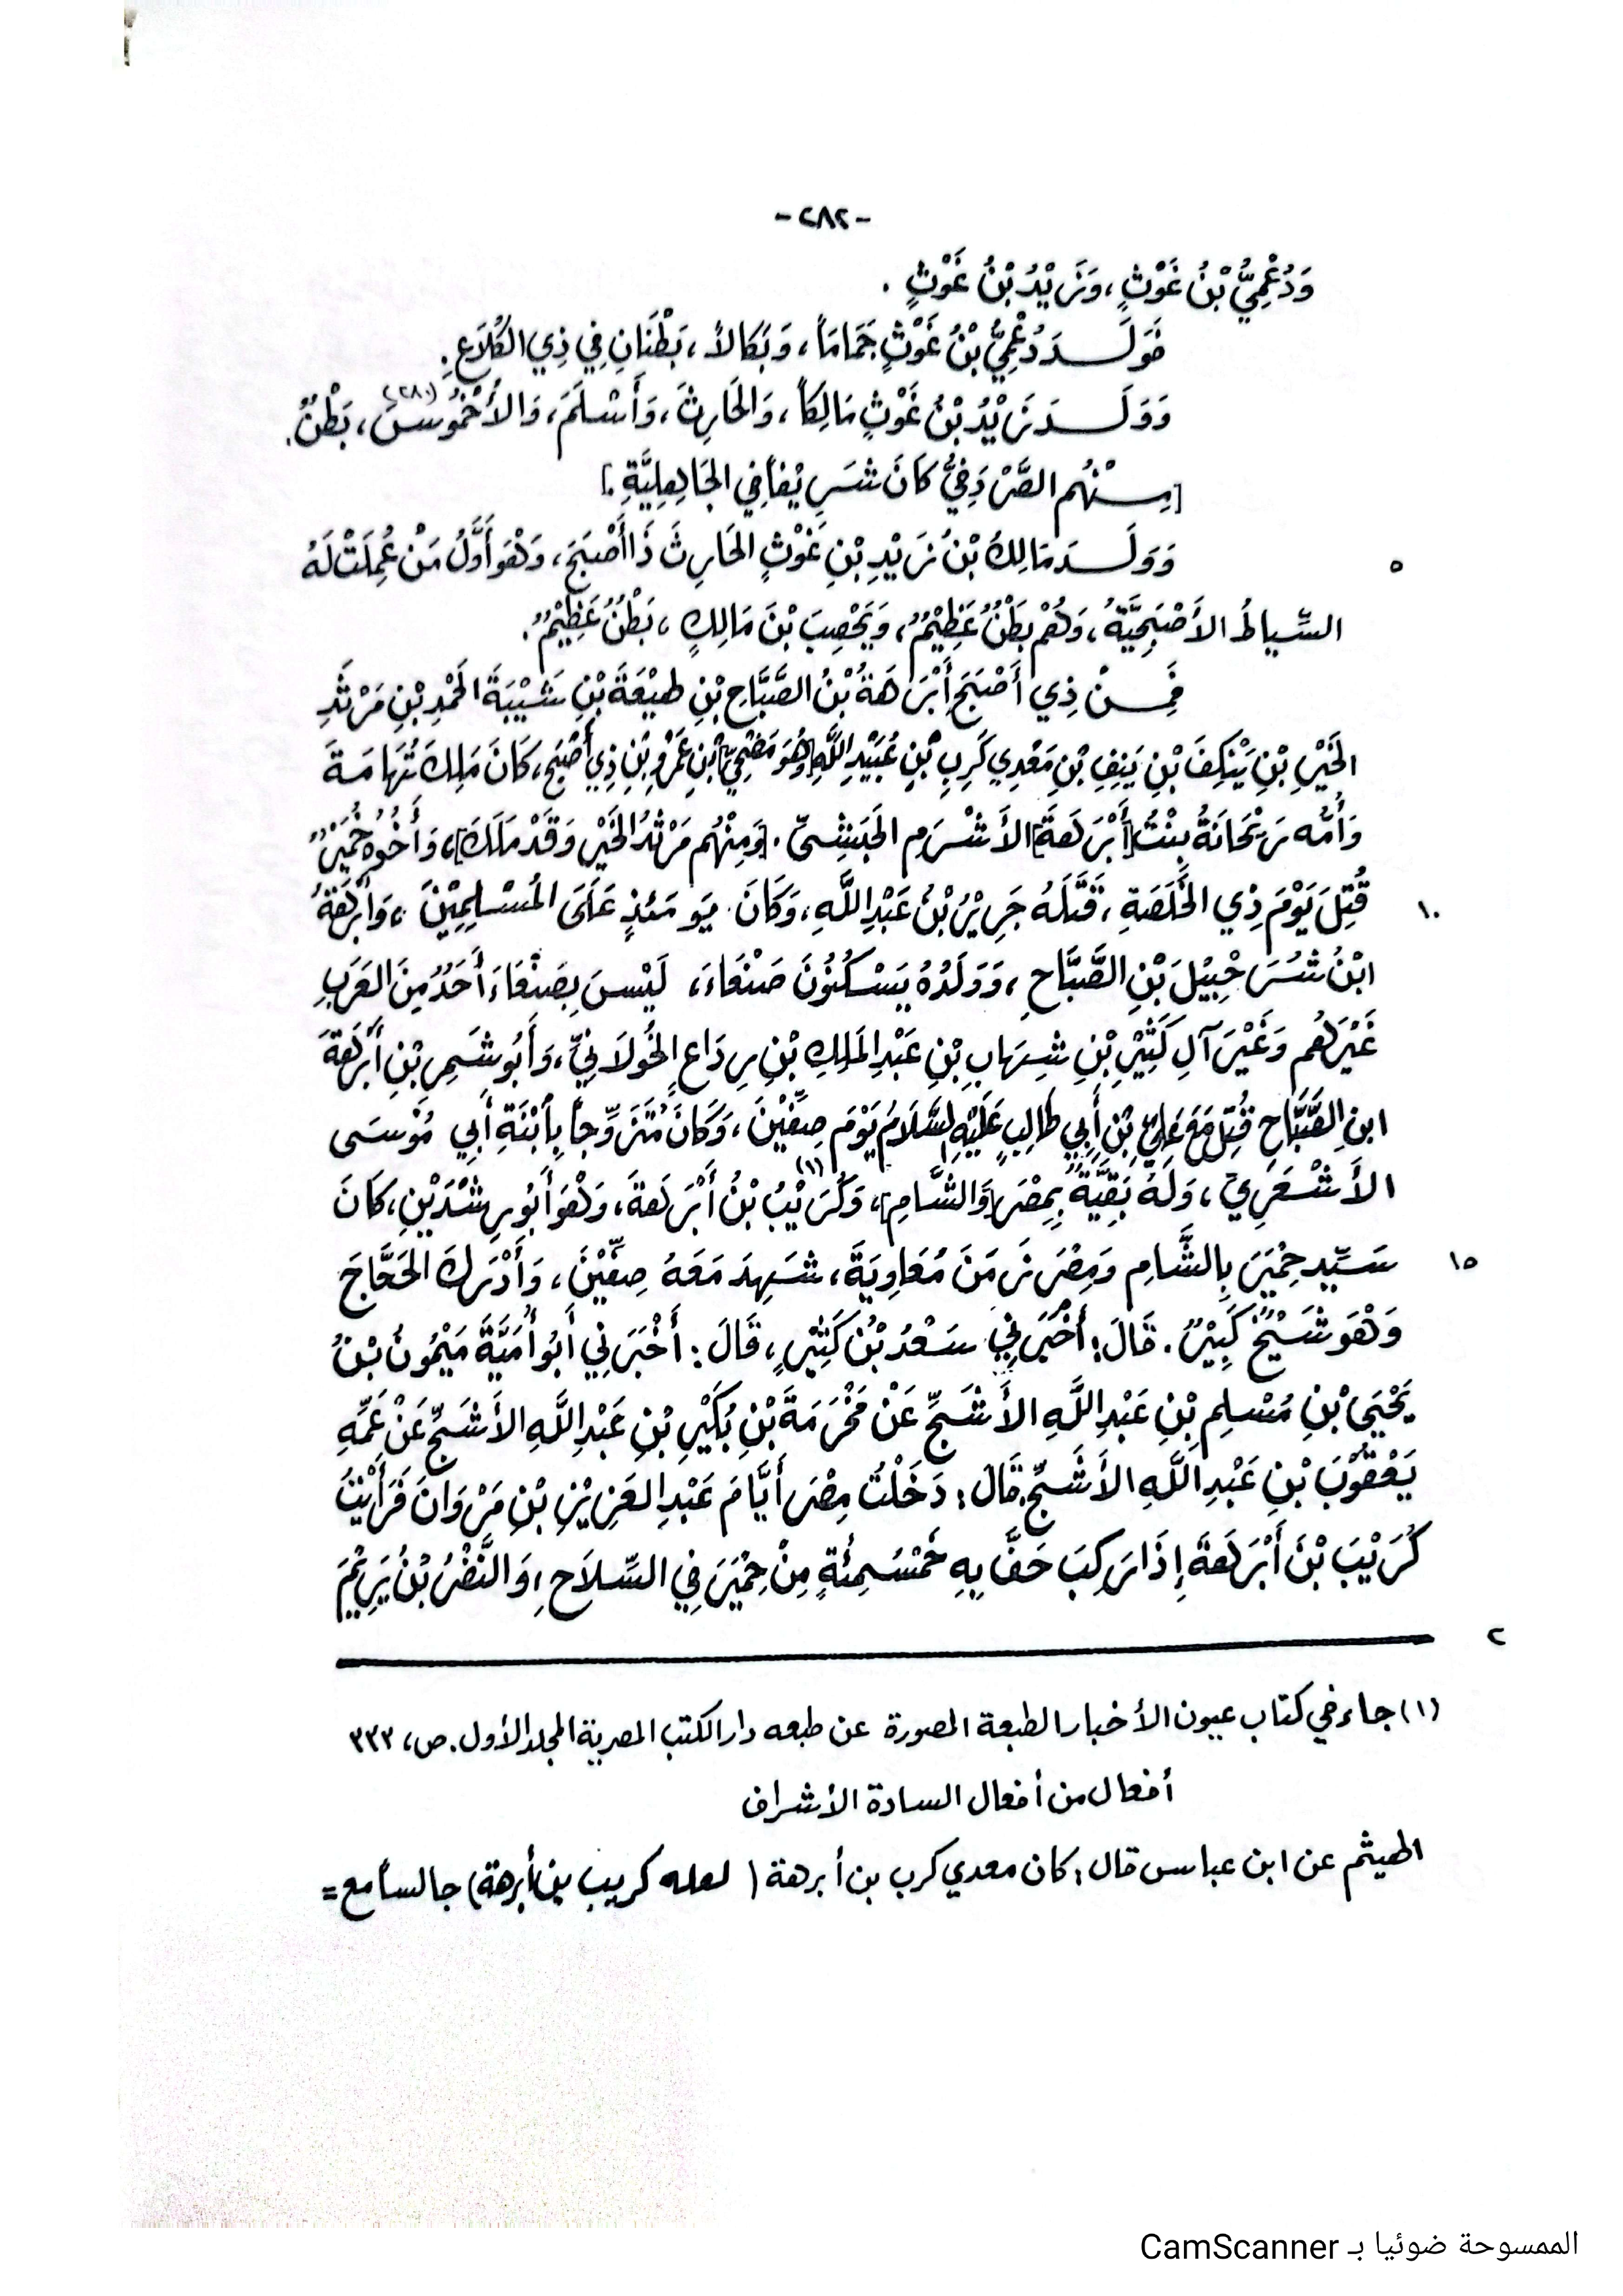 -٢٨٢-
وَدُعْمِيُّ بْنُ غَوْثٍ، وَزَيْدُ بْنُ غَوْثٍ .
فَوَلَـــدَ دُعْمِيُّ بْنُ غَوْثٍ جَمَامَاً، وَبَكَالاً، بَطْنَانِ فِي ذِي الكُلَاعِ.
وَوَلَـــدَ زَيْدُ بْنُ غَوْثٍ مَالِكَاً، وَالحَارِثَ، وَأَسْلَمَ، وَالأُخْمُوسَ(٢٨٠)، بَطْنٌ.
[مِـــنْهُم الصَّرْدَفِيُّ كَانَ شَرِيْفاً فِي الجَاهِلِيَّةِ.]
وَوَلَـــدَ مَالِكُ بْنُ زَيْدِ بْنِ غَوْثٍ الحَارِثَ ذَا أَصْبَحَ، وَهْوَ أَوَّلُ مَنْ عُمِلَتْ لَهُ
٥
السِّيَاطُ الأَصْبَحِيَّةُ، وَهُمْ بَطْنٌ عَظِيْمٌ، وَيَحْصِبَ بْنَ مَالِكٍ، بَطْنٌ عَظِيْمٌ.
فَمِـــنْ ذِي أَصْبَحَ أَبْرَهَةُ بْنُ الصَّبَّاحِ بْنِ لهيْعَةَ بْنِ شَيْبَةَ الحَمْدِ بْنِ مَرْثَدِ
الخَيْرِ بْنِ يَنْكِفَ بْنِ يَنِفِ بْنِ مَعْدِي كَرِبِ بْنِ عُبَيْدِ اللَّهِ [وَهُوَ مَضْحِيُّ] بْنِ عَمْرِو بْنِ ذِي أَصْبَحَ، كَانَ مَلِكَ تُهَامَةَ
وَأُمُّهُ رَيْحَانَةُ بِنْتُ [أَبْرَهَةَ] الأَشْرَمِ الحَبَشِيِّ. [وَمِنْهُم مَرْثَدُ الخَيْرِ وَقَدْ مَلَكَ]، وَأَخُوهُ خُمَيْرٌ
قُتِلَ يَوْمَ ذِي الخَلَصَةِ، قَتَلَهُ جَرِيْرُ بْنُ عَبْدِ اللَّهِ، وَكَانَ يَومَئِذٍ عَلَى المُسْلِمِيْنَ، وَأَبْرَهَةُ
١٠
ابْنُ شُرَحْبِيْلَ بْنِ الصَّبَّاحِ، وَوَلَدُهُ يَسْكُنُونَ صَنْعَاءَ، لَيْسَ بِصَنْعَاءَ أَحَدٌ مِنَ العَرَبِ
غَيْرَهُم وَغَيْرَ آلِ كَثِيْرِ بْنِ شِهَابِ بْنِ عَبْدِ المَلِكِ بْنِ رِدَاعٍ الخُولَانِيِّ، وَأَبُو شَمِرِ بْنِ أَبْرَهَةَ
ابنِ الصَّبَّاحِ قُتِلَ مَعَ عَلِيِّ بْنِ أَبِي طَالِبٍ عَلَيْهِ السَّلَامُ يَوْمَ صِفِّيْنَ، وَكَانَ مُتَزَوِّجاً بِابْنَةِ أَبِي مُوْسَى
الأَشْعَرِيِّ، وَلَهُ بَقِيَّةٌ بِمِصْرَ [وَالشَّامِ]، وَكُرَيْبُ(١) بْنُ أَبْرَهَةَ، وَهْوَ أَبُو رِشْدَيْنِ، كَانَ
سَيِّدَ حِمْيَرَ بِالشَّامِ وَمِصْرَ زَمَنَ مُعَاوِيَةَ، شَهِدَ مَعَهُ صِفِّيْنَ، وَأَدْرَكَ الحَجَّاجَ
١٥
وَهْوَ شَيْخٌ كَبِيْرٌ. قَالَ: أَخْبَرَنِي سَعْدُ بْنُ كَثِيْرٍ، قَالَ: أَخْبَرَنِي أَبُو أُمَيَّةَ مَيْمُونُ بْنُ
يَحْيَى بْنِ مُسْلِمِ بْنِ عَبْدِ اللَّهِ الأَشَجِّ عَنْ مَخْرَمَةَ بْنِ بُكَيْرِ بْنِ عَبْدِ اللَّهِ الأَشَجِّ عَنْ عَمِّهِ
يَعْقُوْبَ بْنِ عَبْدِ اللَّهِ الأَشَجِّ قَالَ: دَخَلْتُ مِصْرَ أَيَّامَ عَبْدِ العَزِيْزِ بْنِ مَرْوَانَ فَرَأَيْتُ
كُرَيْبَ بْنَ أَبْرَهَةَ إِذَا رَكِبَ حَفَّ بِهِ خَمْسُمِئَةٍ مِنْ حِمْيَرَ فِي السِّلَاحِ، وَالنَّضْرُ بْنُ يَرِيْمَ
٢
(١) جاء في كتاب عيون الأخبار الطبعة المصورة عن طبعه دار الكتب المصرية المجلد الأول. ص، ٣٣٣
أفعال من أفعال السادة الأشراف
الهيثم عن ابن عباس قال: كان معدي كرب بن أبرهة ( لعله كريب بن أبرهة) جالسا مع =
الممسوحة ضوئيا بـ CamScanner